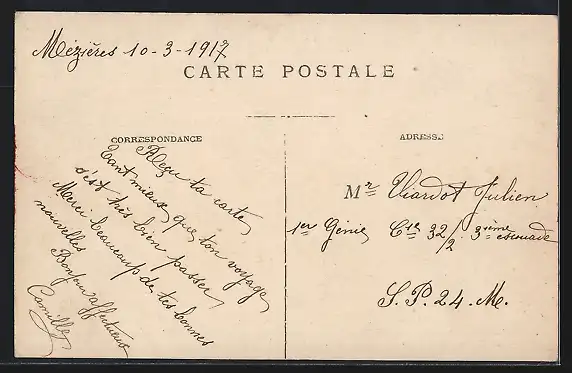 Mézières 10-3-1917
CARTE POSTALE
CORRESPONDANCE
Reçu ta carte,
tant mieux que ton voyage
s'est très bien passer,
Merci beaucoup de tes bonnes
nouvelles
Bonjour affectueux
Camille
ADRESSE
Mr Viardot Julien
1er Génie Cie 32/2. 3ième escouade
S.P. 24. M.